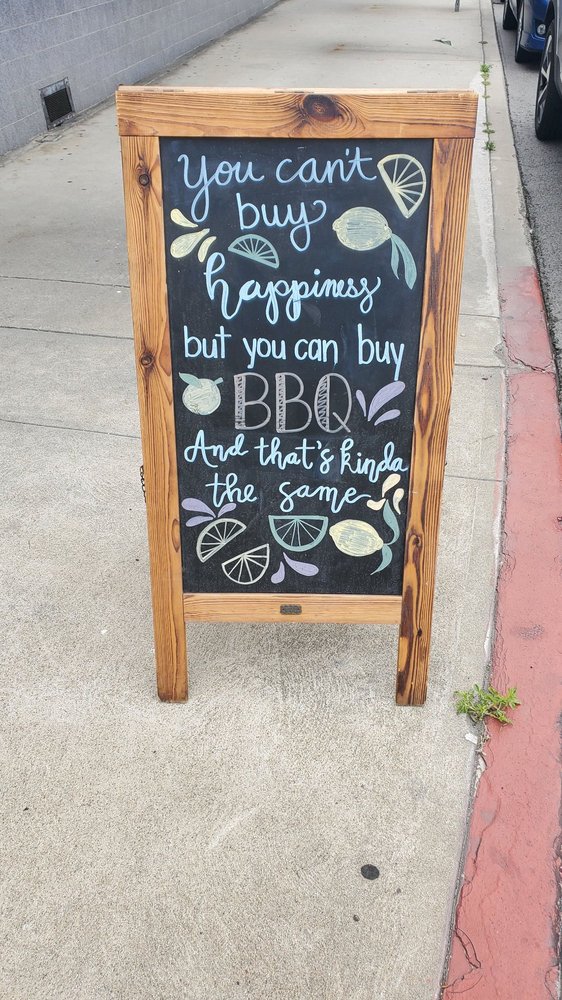 You can't
buy
happiness
but you can buy
BBQ
And that's kinda
the same